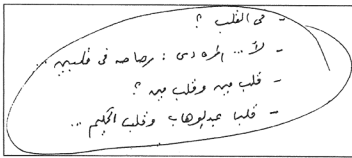 - فى القلب ؟
- لأ ... المره دى : رصاصه فى قلبين ...
- قلب مين وقلب مين ؟
- قلب عبدالوهاب وقلب الحكيم ...